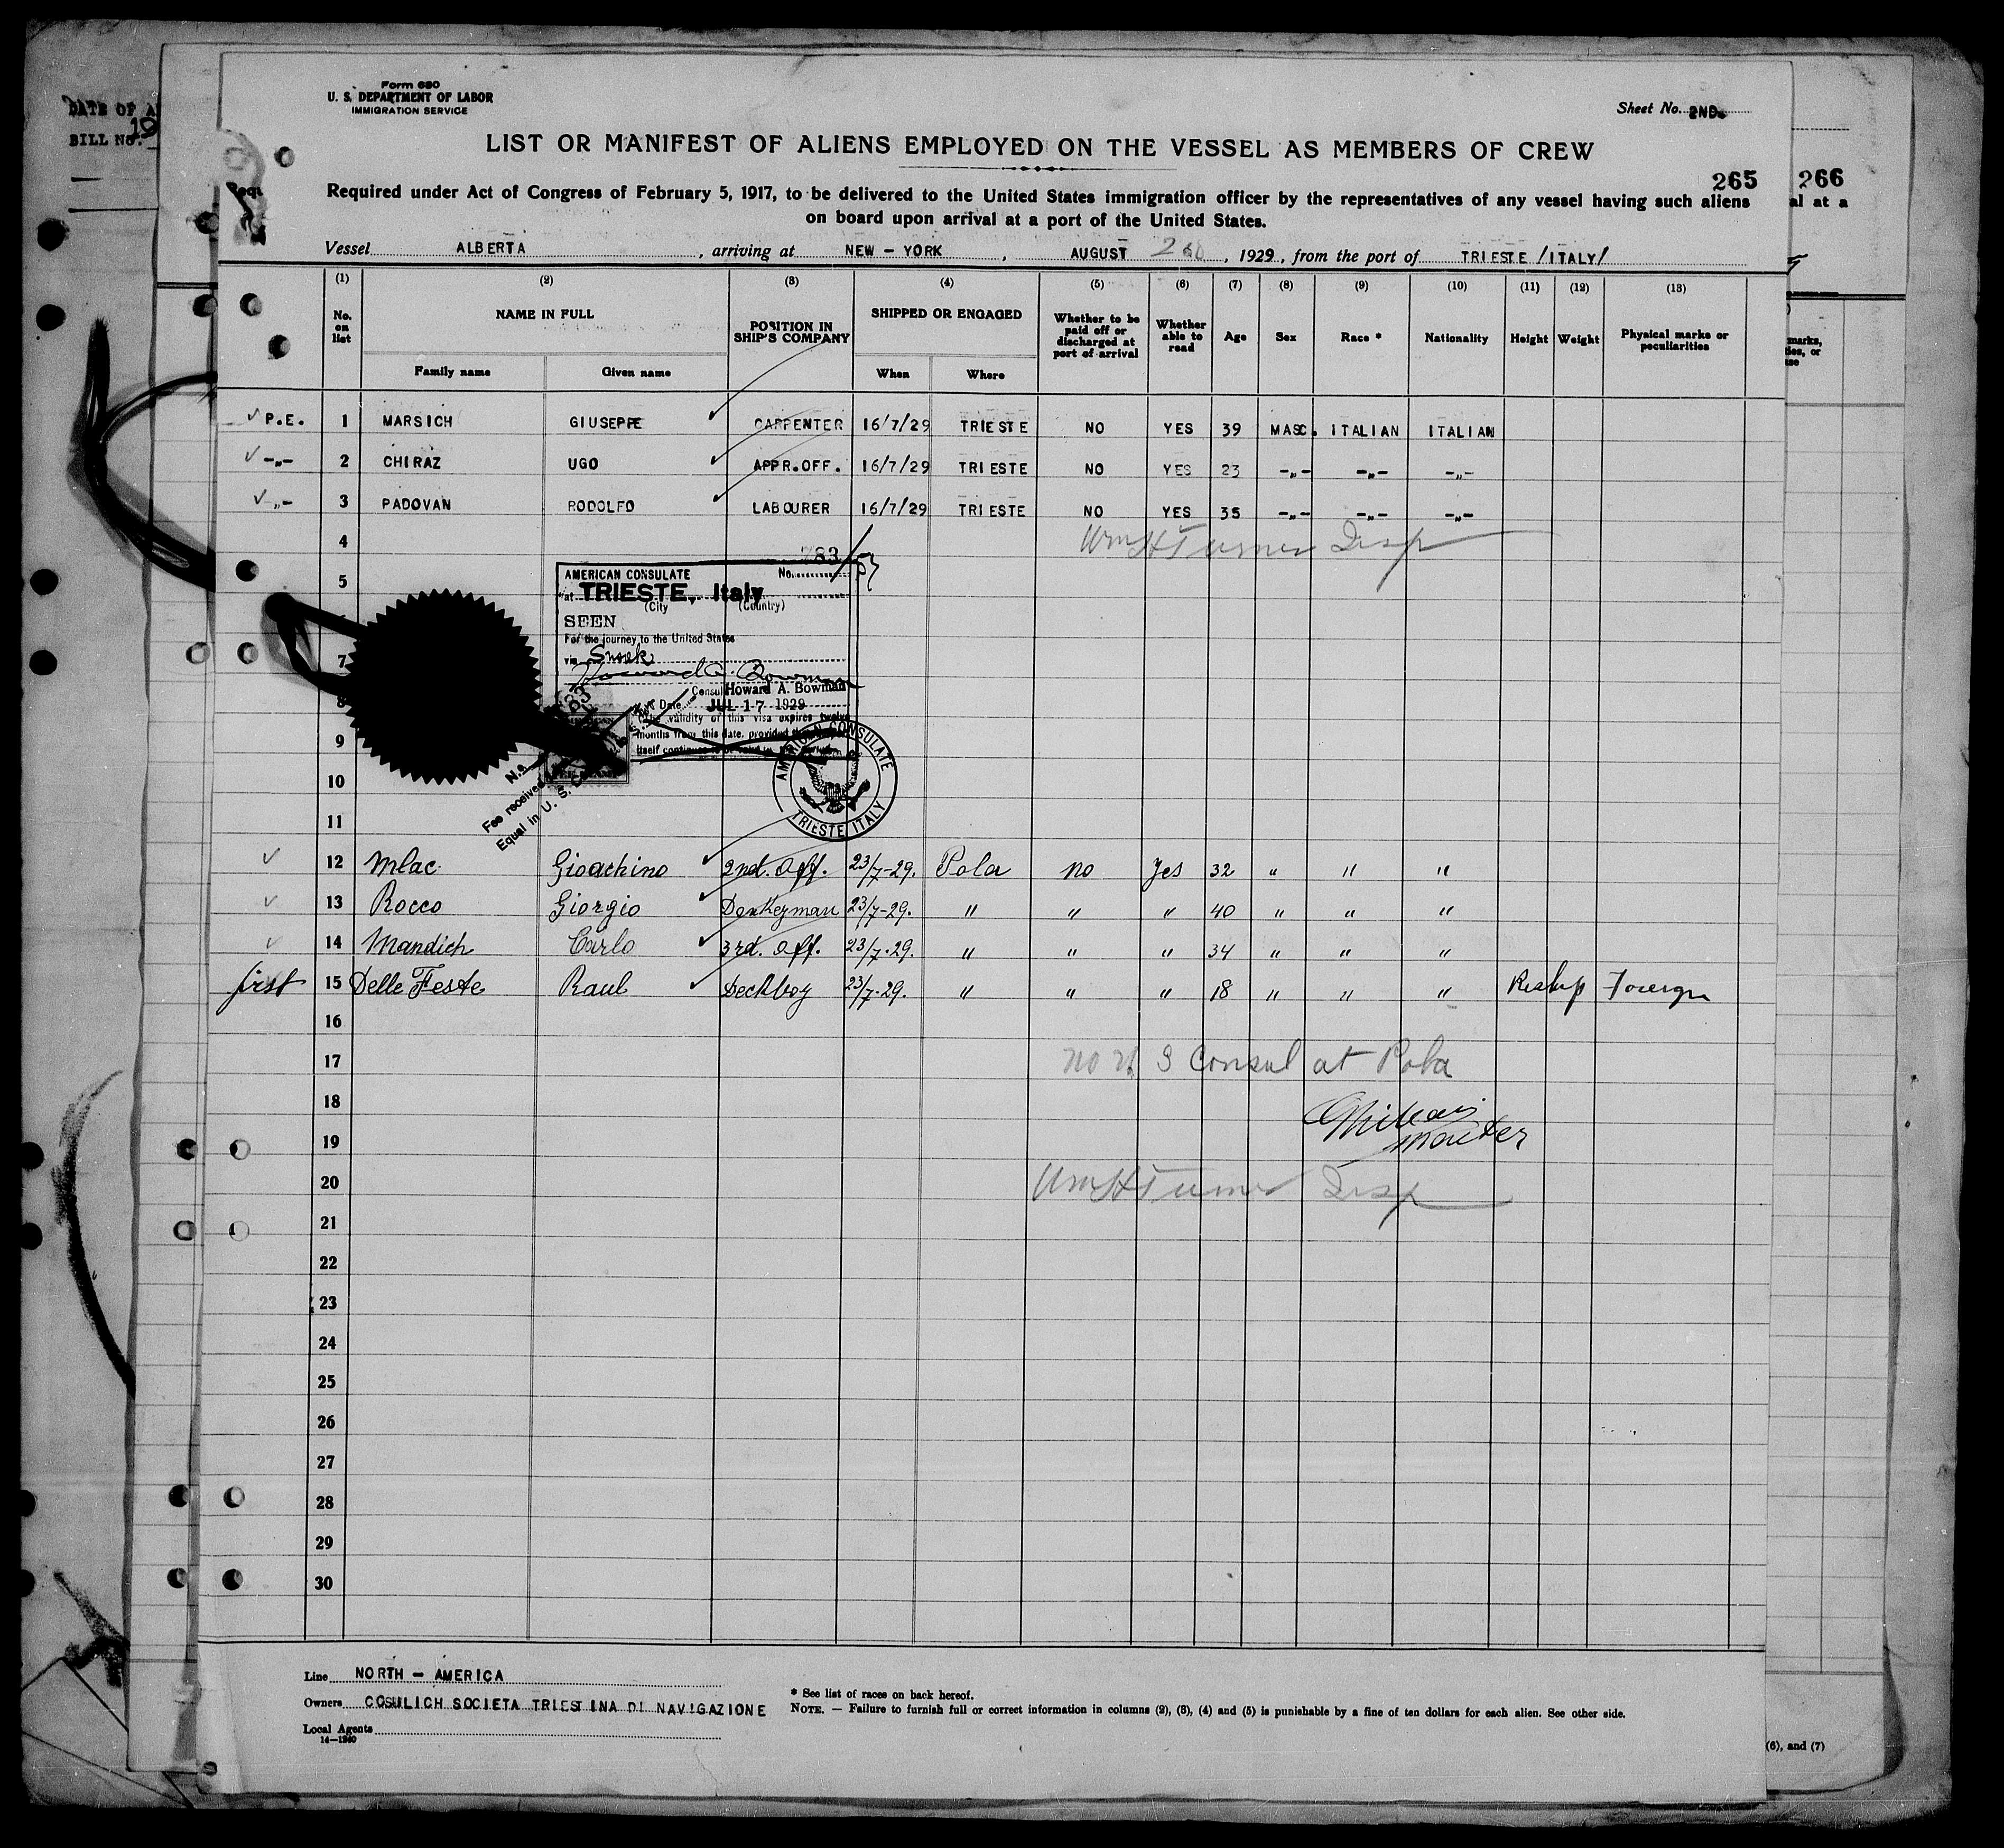 DATE OF A
BILL No.
Form 680
U. S. DEPARTMENT OF LABOR
IMMIGRATION SERVICE
Sheet No. 2ND.
LIST OR MANIFEST OF ALIENS EMPLOYED ON THE VESSEL AS MEMBERS OF CREW
265 266
Required under Act of Congress of February 5, 1917, to be delivered to the United States immigration officer by the representatives of any vessel having such aliens
al at a
on board upon arrival at a port of the United States.
Vessel ALBERTA , arriving at NEW – YORK , AUGUST , 1929, from the port of TRIESTE /ITALY/
(1) (2) (3) (4) (5) (6) (7) (8) (9) (10) (11) (12) (13)
No. on list NAME IN FULL POSITION IN SHIP'S COMPANY SHIPPED OR ENGAGED Whether to be paid off or discharged at port of arrival Whether able to read Age Sex Race * Nationality Height Weight Physical marks or peculiarities
Family name Given name When Where
P.E. 1 MARSICH GIUSEPPE CARPENTER 16/7/29 TRIESTE NO YES 39 MASC. ITALIAN ITALIAN
-„- 2 CHIRAZ UGO APPR.OFF. 16/7/29 TRIESTE NO YES 23 -„- -„- -„-
-„- 3 PADOVAN RODOLFO LABOURER 16/7/29 TRIESTE NO YES 35 -„- -„- -„-
4 Wm H Turner Insp
783
5
AMERICAN CONSULATE No.
at TRIESTE, Italy
(City (Country)
SEEN
For the journey to the United States
via Susak
7
Howard A. Bowman
Consul Howard A. Bowman
8
Date JUL 17 1929
The validity of this visa expires twelve
months from this date, provided
itself continues
9
10
11
No.
Fee received
Equal in U. S.
AMERICAN CONSULATE
TRIESTE ITALY
12 Mlac Gioachino 2nd. Off. 23/7-29. Pola no Yes 32 " " "
13 Rocco Giorgio Donkeyman 23/7-29. " " " 40 " " "
14 Mandich Carlo 3rd. Off. 23/7-29. " " " 34 " " "
first 15 Delle Feste Raul Deckboy 23/7-29. " " " 18 " " " Reship Foreign
16
17 no U S Consul at Pola
18
19 Master
20 Wm H Turner Insp
21
22
23
24
25
26
27
28
29
30
Line NORTH – AMERICA
Owners COSULICH SOCIETA TRIESTINA DI NAVIGAZIONE
Local Agents
14—1240
* See list of races on back hereof.
NOTE. — Failure to furnish full or correct information in columns (2), (3), (4) and (5) is punishable by a fine of ten dollars for each alien. See other side.
(6), and (7)